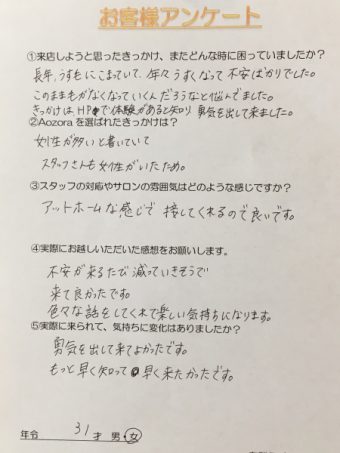 お客様アンケート
①来店しようと思ったきっかけ、またどんな時に困っていましたか？
長年、うす毛にこまっていて、年々うすくなって不安ばかりでした。
このまま毛がなくなっていくんだろうなと悩んでました。
きっかけはHPで体験があると知り、勇気を出して来ました。
②Aozoraを選ばれたきっかけは？
女性が多いと書いていて
スタッフさんも女性がいたため。
③スタッフの対応やサロンの雰囲気はどのような感じですか？
アットホームな感じで接してくれるので良いです。
④実際にお越しいただいた感想をお願いします。
不安が来るたび減っていきそうで
来て良かったです。
色々な話をしてくれて楽しい気持ちになります。
⑤実際に来られて、気持ちに変化はありましたか？
勇気を出して来てよかったです。
もっと早く知って早く来たかったです。
年令 31才 男・女